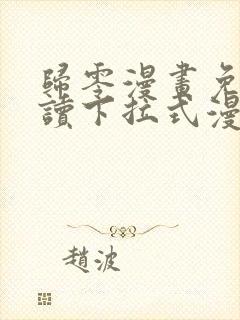 歸零漫畫免
讀下拉式漫
趙波